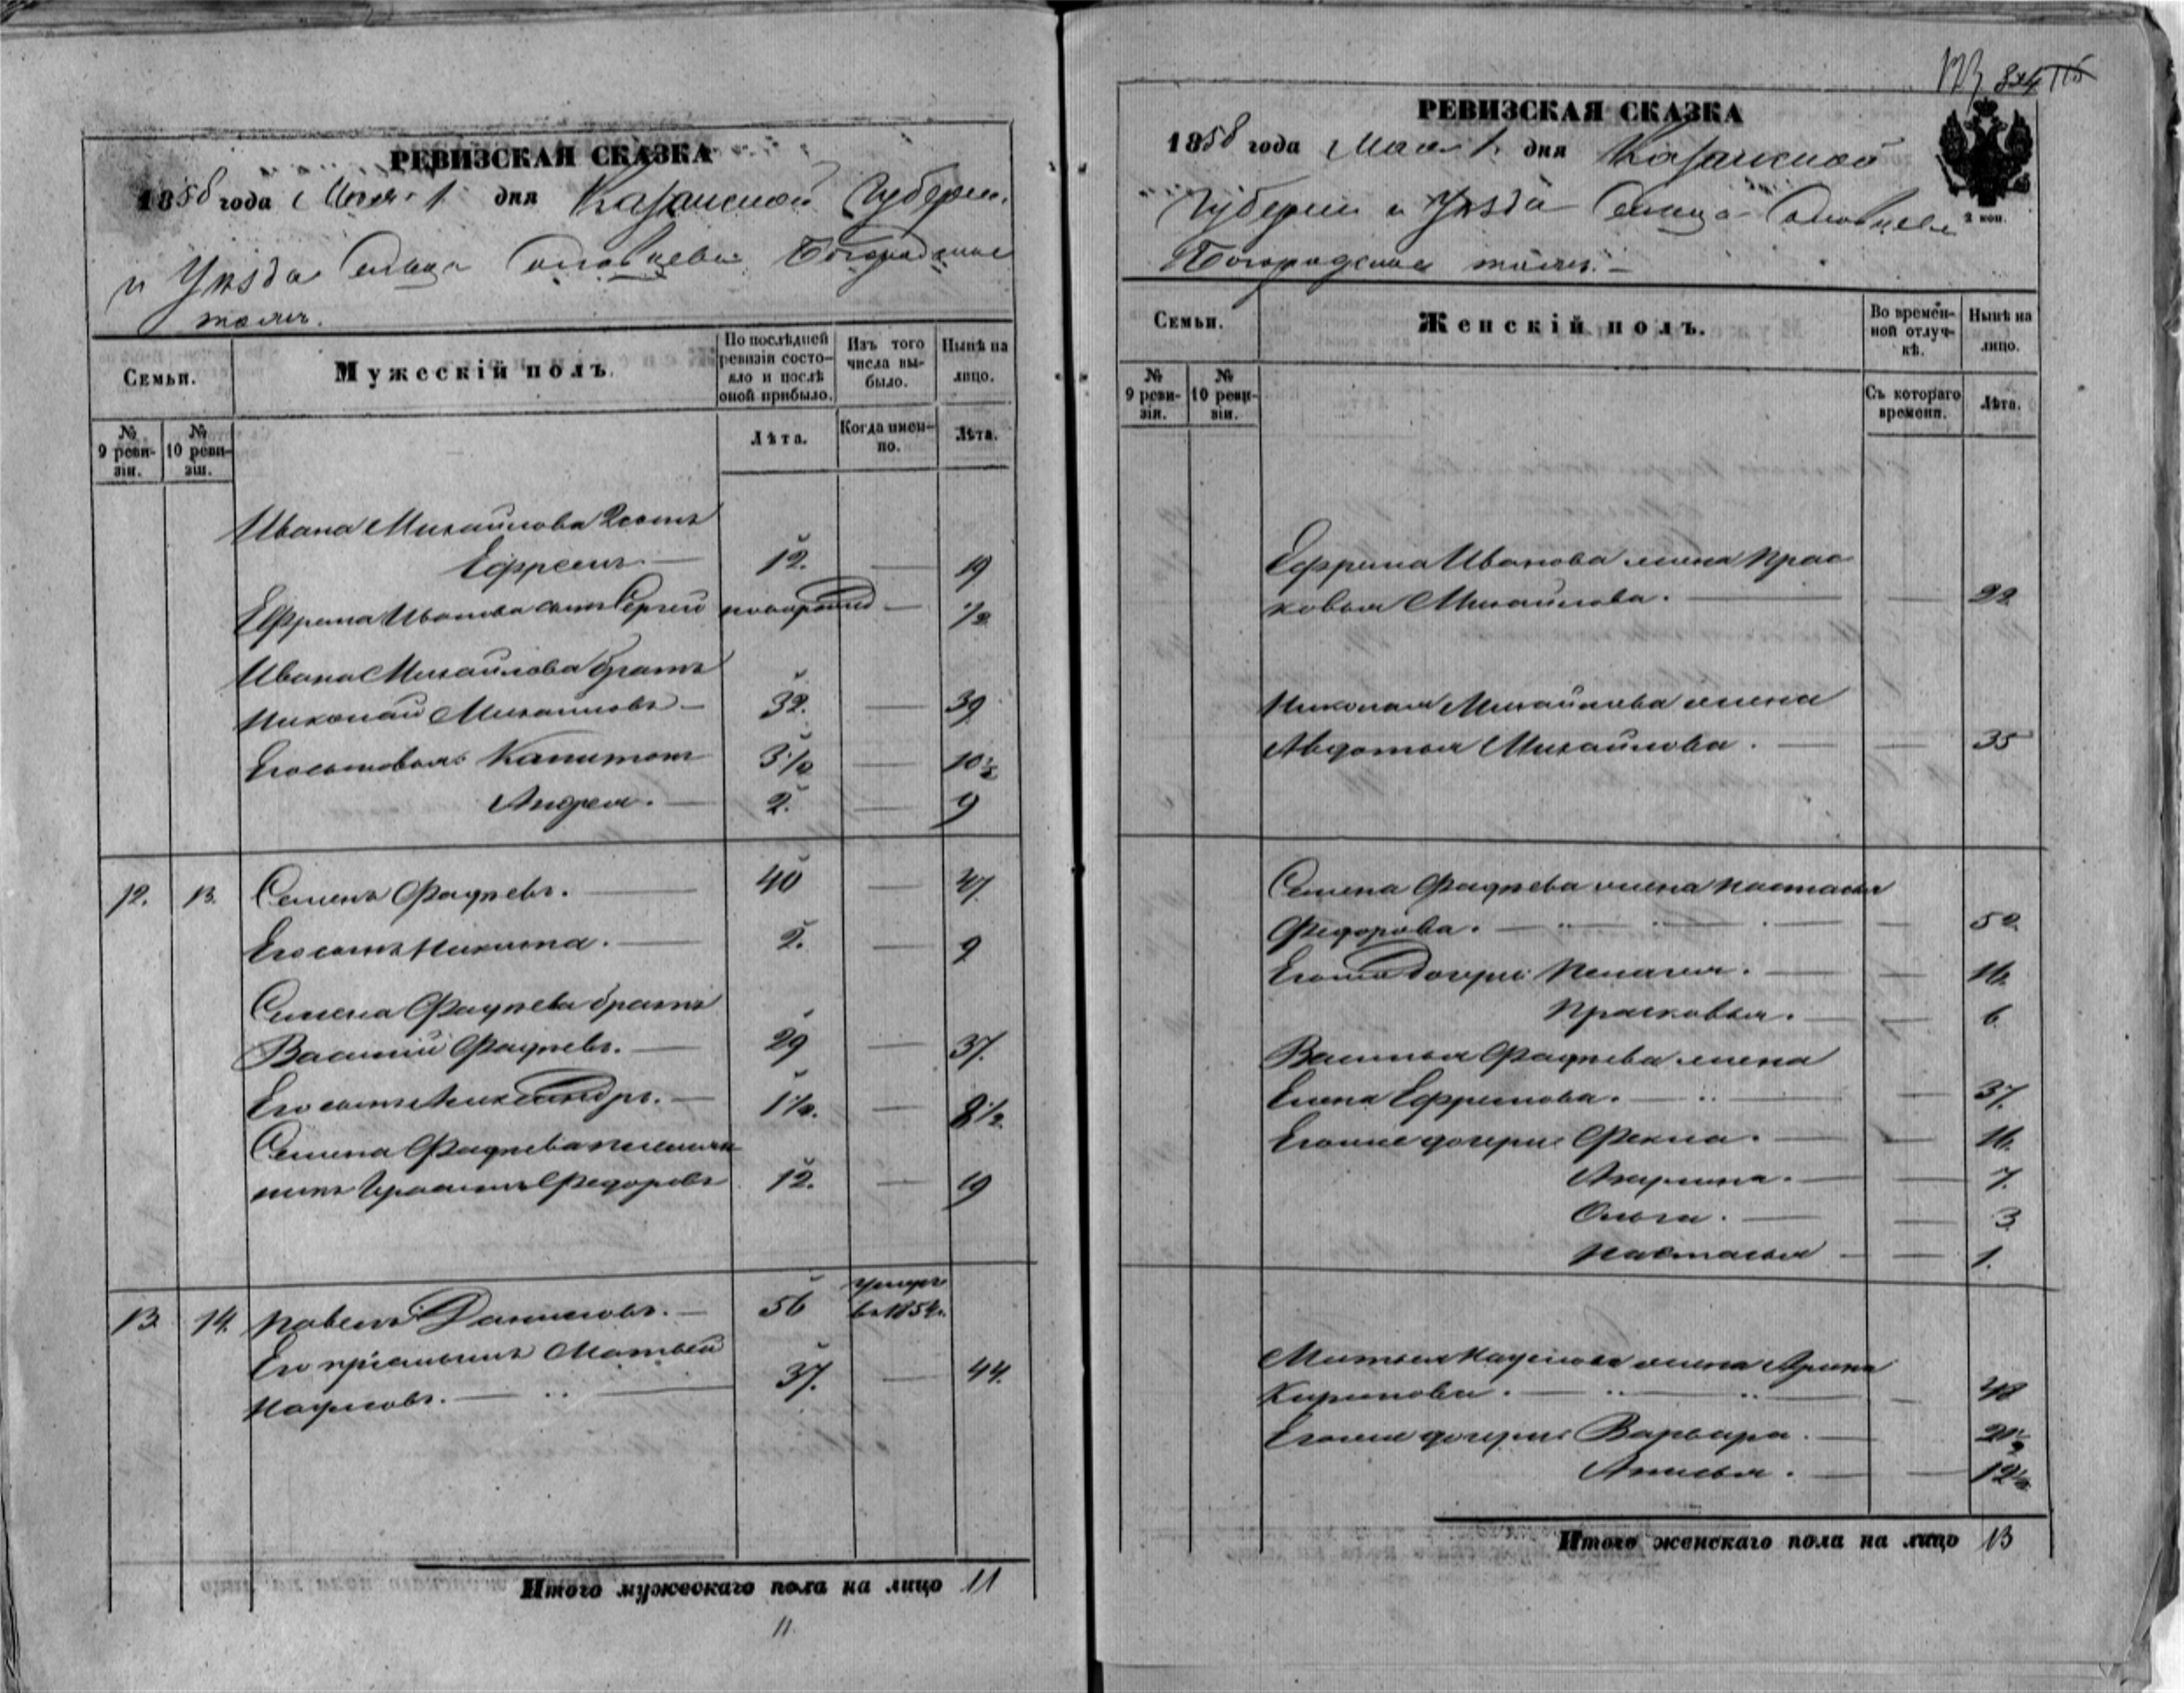 РЕВИЗСКАЯ СКАЗКА
1858 года Мая 1 дня Казанской Губерніи
и Уѣзда Сельца Богородское
тожъ.
Семьи.
Мужескій полъ.
По послѣдней ревизіи состояло и послѣ оной прибыло.
Изъ того числа выбыло.
Нынѣ на лицо.
№ 9 ревизіи.
№ 10 ревизіи.
Лѣта.
Когда именно.
Лѣта.
Ивана Михайлова 2 сынъ
Ефремъ 12. 19
Ефрема Иванова сынъ Сергей новорожд 1/2
Ивана Михайлова братъ
Николай Михайловъ 32. 39
Его сыновья: Капитонъ 3 1/2 10 1/2
Андрей. 2. 9
12. 13. Семенъ Фадѣевъ. 40 47.
Его сынъ Никита. 2. 9
Семена Фадѣева братъ
Василій Фадѣевъ. 29 37.
Его сынъ Александръ. 1 1/2. 8 1/2
Семена Фадѣева племян
никъ Федоровъ 12. 19
13. 14. Павелъ Даниловъ. 56 умеръ
въ 1854.
Его пріемышъ Матвей
Наумовъ. 37. 44.
Итого мужескаго пола на лицо 11
11.
173 115
РЕВИЗСКАЯ СКАЗКА
1858 года Мая 1 дня Казанской
Губерніи и Уѣзда Сельца
2 коп.
Богородское тожъ.
Семьи.
Женскій полъ.
Во временной отлучкѣ.
Нынѣ на лицо.
№ 9 ревизіи.
№ 10 ревизіи.
Съ котораго времени.
Лѣта.
Ефрема Иванова жена Прас
ковья Михайлова. 22
Николая Михайлова жена
Авдотья Михайлова. 35
Семена Фадѣева жена Настасья
Федорова. 52
Его же дочери: Пелагея. 16.
Прасковья. 6
Василья Фадѣева жена
Елена Ефремова. 37.
Его же дочери: Фекла. 16.
Акулина. 7.
Ольга. 3
Настасья 1.
Матвея Наумова жена Арина
Кирилова. 48
Его же дочери: Варвара.
Анисья. 12 1/2
Итого женскаго пола на лицо 13